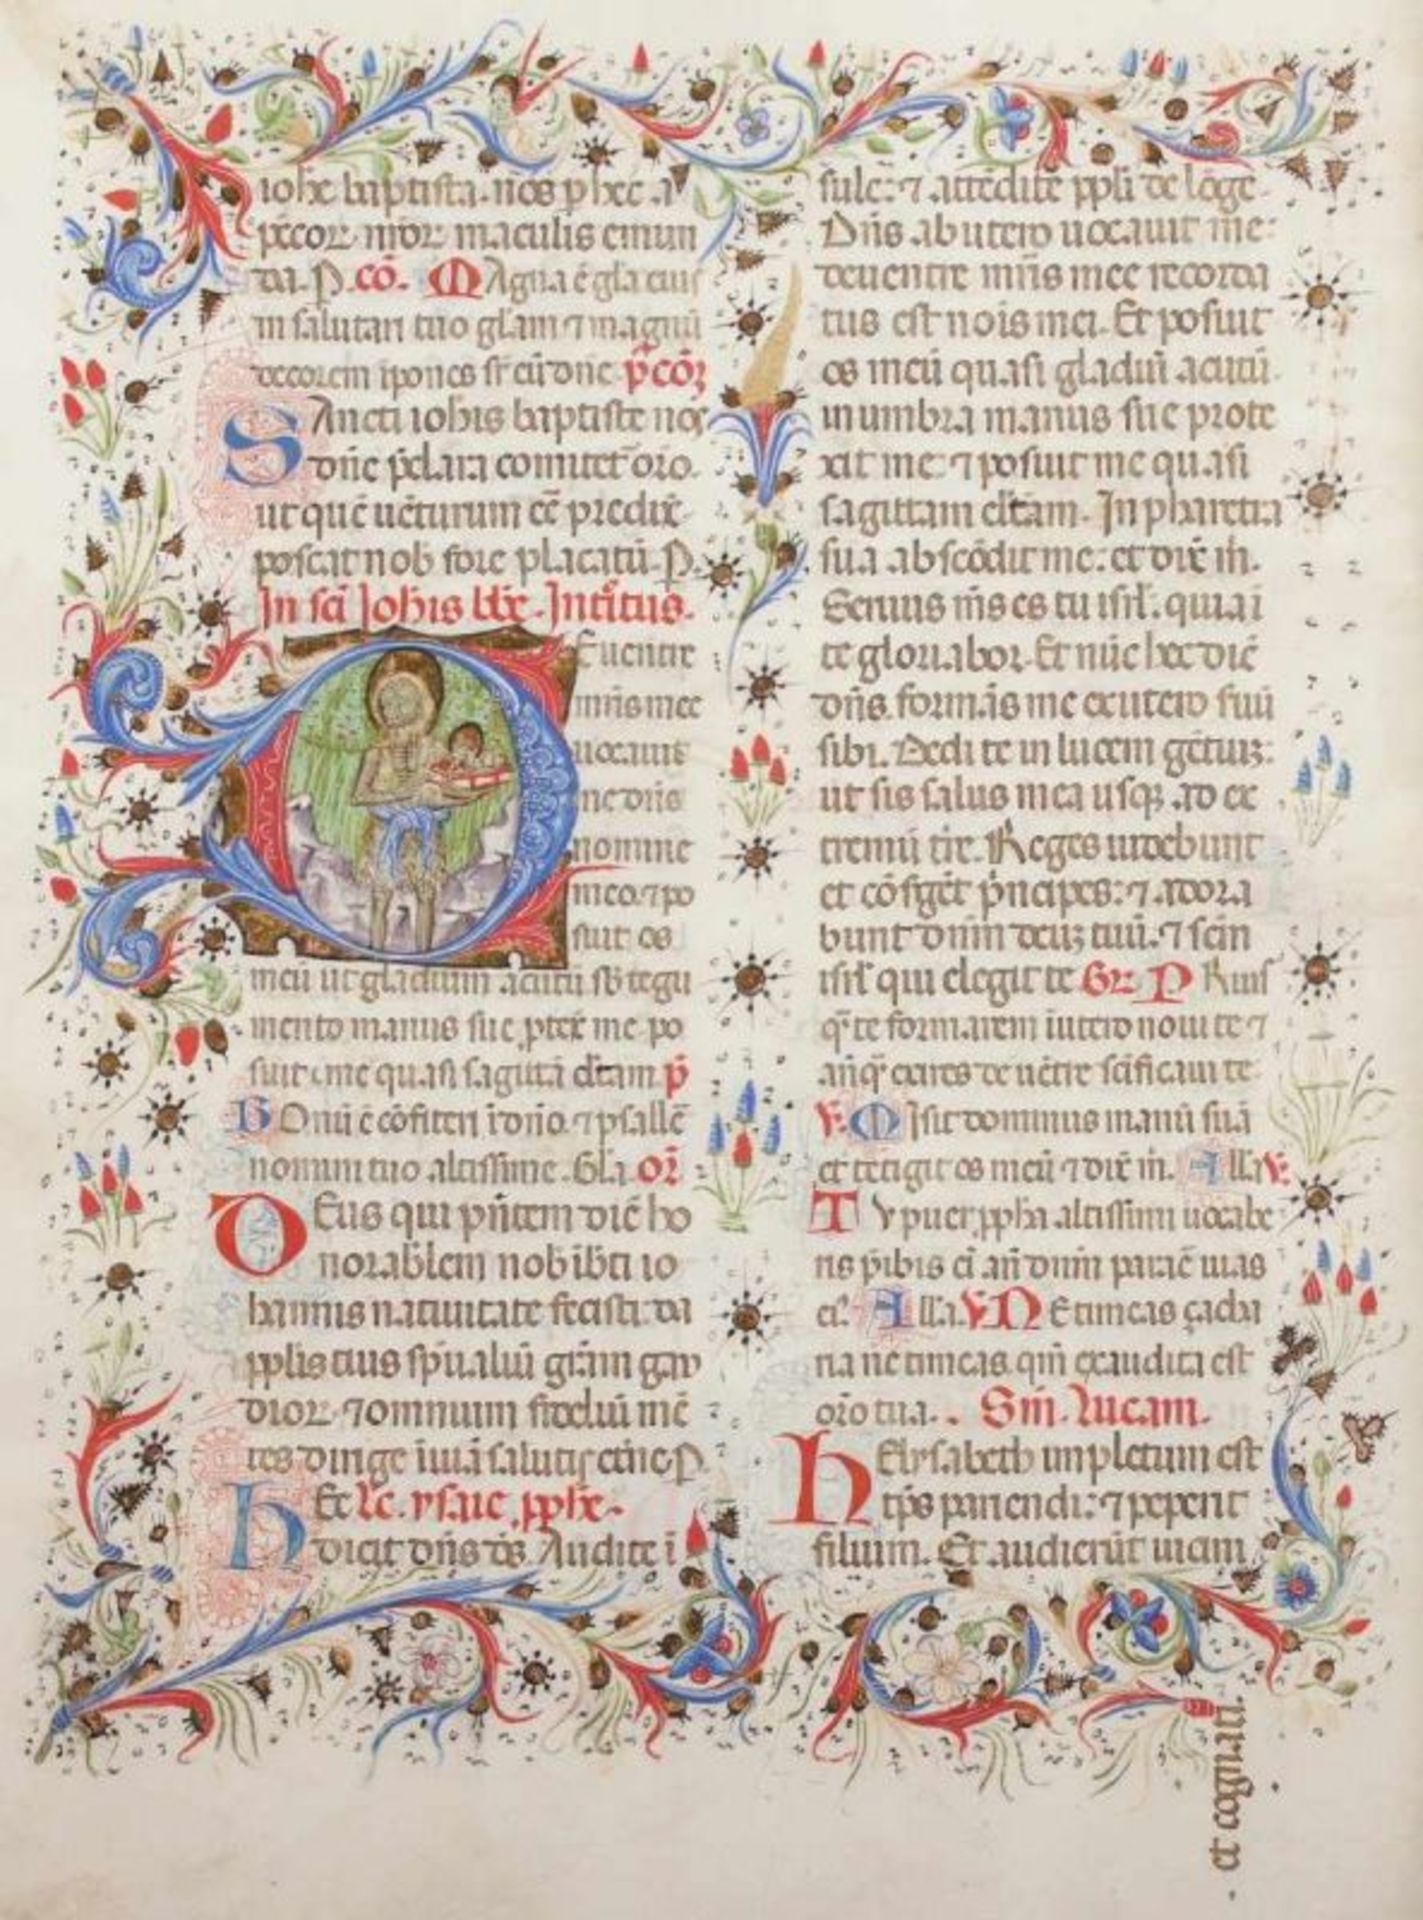 iohe baptista. nos phec. a
pccoꝝ nroꝝ maculis emun
da. P. cō. MAgna ē gła eius
in salutari tuo głam ⁊ magnū
decorem ipones sr eū dne p̄cōꝝ
SAncti iohis baptiste nos
dn̄e p̄clara comitet̄ oro.
ut quē uēturum cē predix̄
poscat nob fore placatū. P.
In sc̄i Johis bt̄e. Introitus.
DE uentre
mr̄is mee
uocauit
me dn̄s
nomine
meo. ⁊ po
suit os
meū ut gladium acutū sb̄ tegu
mento manus sue ptex̄ me po
suit me quasi sagittā el̄tam p̄
BOnū ē cōfiteri ī dn̄o. ⁊ psallē
nomini tuo altissime. Gl̄a or̄
DEus qui pn̄tem diē ho
norablem nob i bt̄i io
hannis natiuitate fecisti: da
pplis tuis sp̄ualiū gr̄am gau
dioꝝ ⁊ omnium fideliū mē
tes dirige ī uiā salutis et̄ne. P.
HEc lc̄. ysaie pphe.
dicit dn̄s ds̄ Audite ī
sule: ⁊ attēdite ppli de lōge.
Dn̄s ab utero uocauit me:
de uentre mr̄is mee recorda
tus est nois mei. Et posuit
os meū quasi gladiū acutū.
in umbra manus sue prote
xit me: ⁊ posuit me quasi
sagittam el̄tam. In pharetra
sua abscōdit me: et dix̄ m̄.
Seruus ms̄ es tu isrl̄. quia ī
te gloriabor. Et nūc hec dic̄
dn̄s. formās me ex utero suū
sibi. Dedi te in lucem gētiuꝫ:
ut sis salus mea usqꝫ ad ex
tremū tr̄e. Reges uidebunt
et cōsgēt p̄ncipes: ⁊ adora
bunt dnm̄ deuꝫ tuū. ⁊ scm̄
isrl̄ qui elegit te Gr̄ PRius
q̄ te formarem ī utero noui te ⁊
anq̄ exires de uētre scificaui te
V. MIsit dominus manū suā
et tetigit os meū ⁊ dix̄ m̄. Alla V.
TV puer ppha altissimi uocabe
ris p̄ibis ei an̄ dnm̄ parare uias
ei. Alla V. NE timeas çacha
ria ne timeas. qm̄ exaudita est
oro tua.. Sm̄. lucam.
HElysabeth impletum est
tps pariendi: ⁊ peperit
filium. Et audierūt uicini
et cognati.